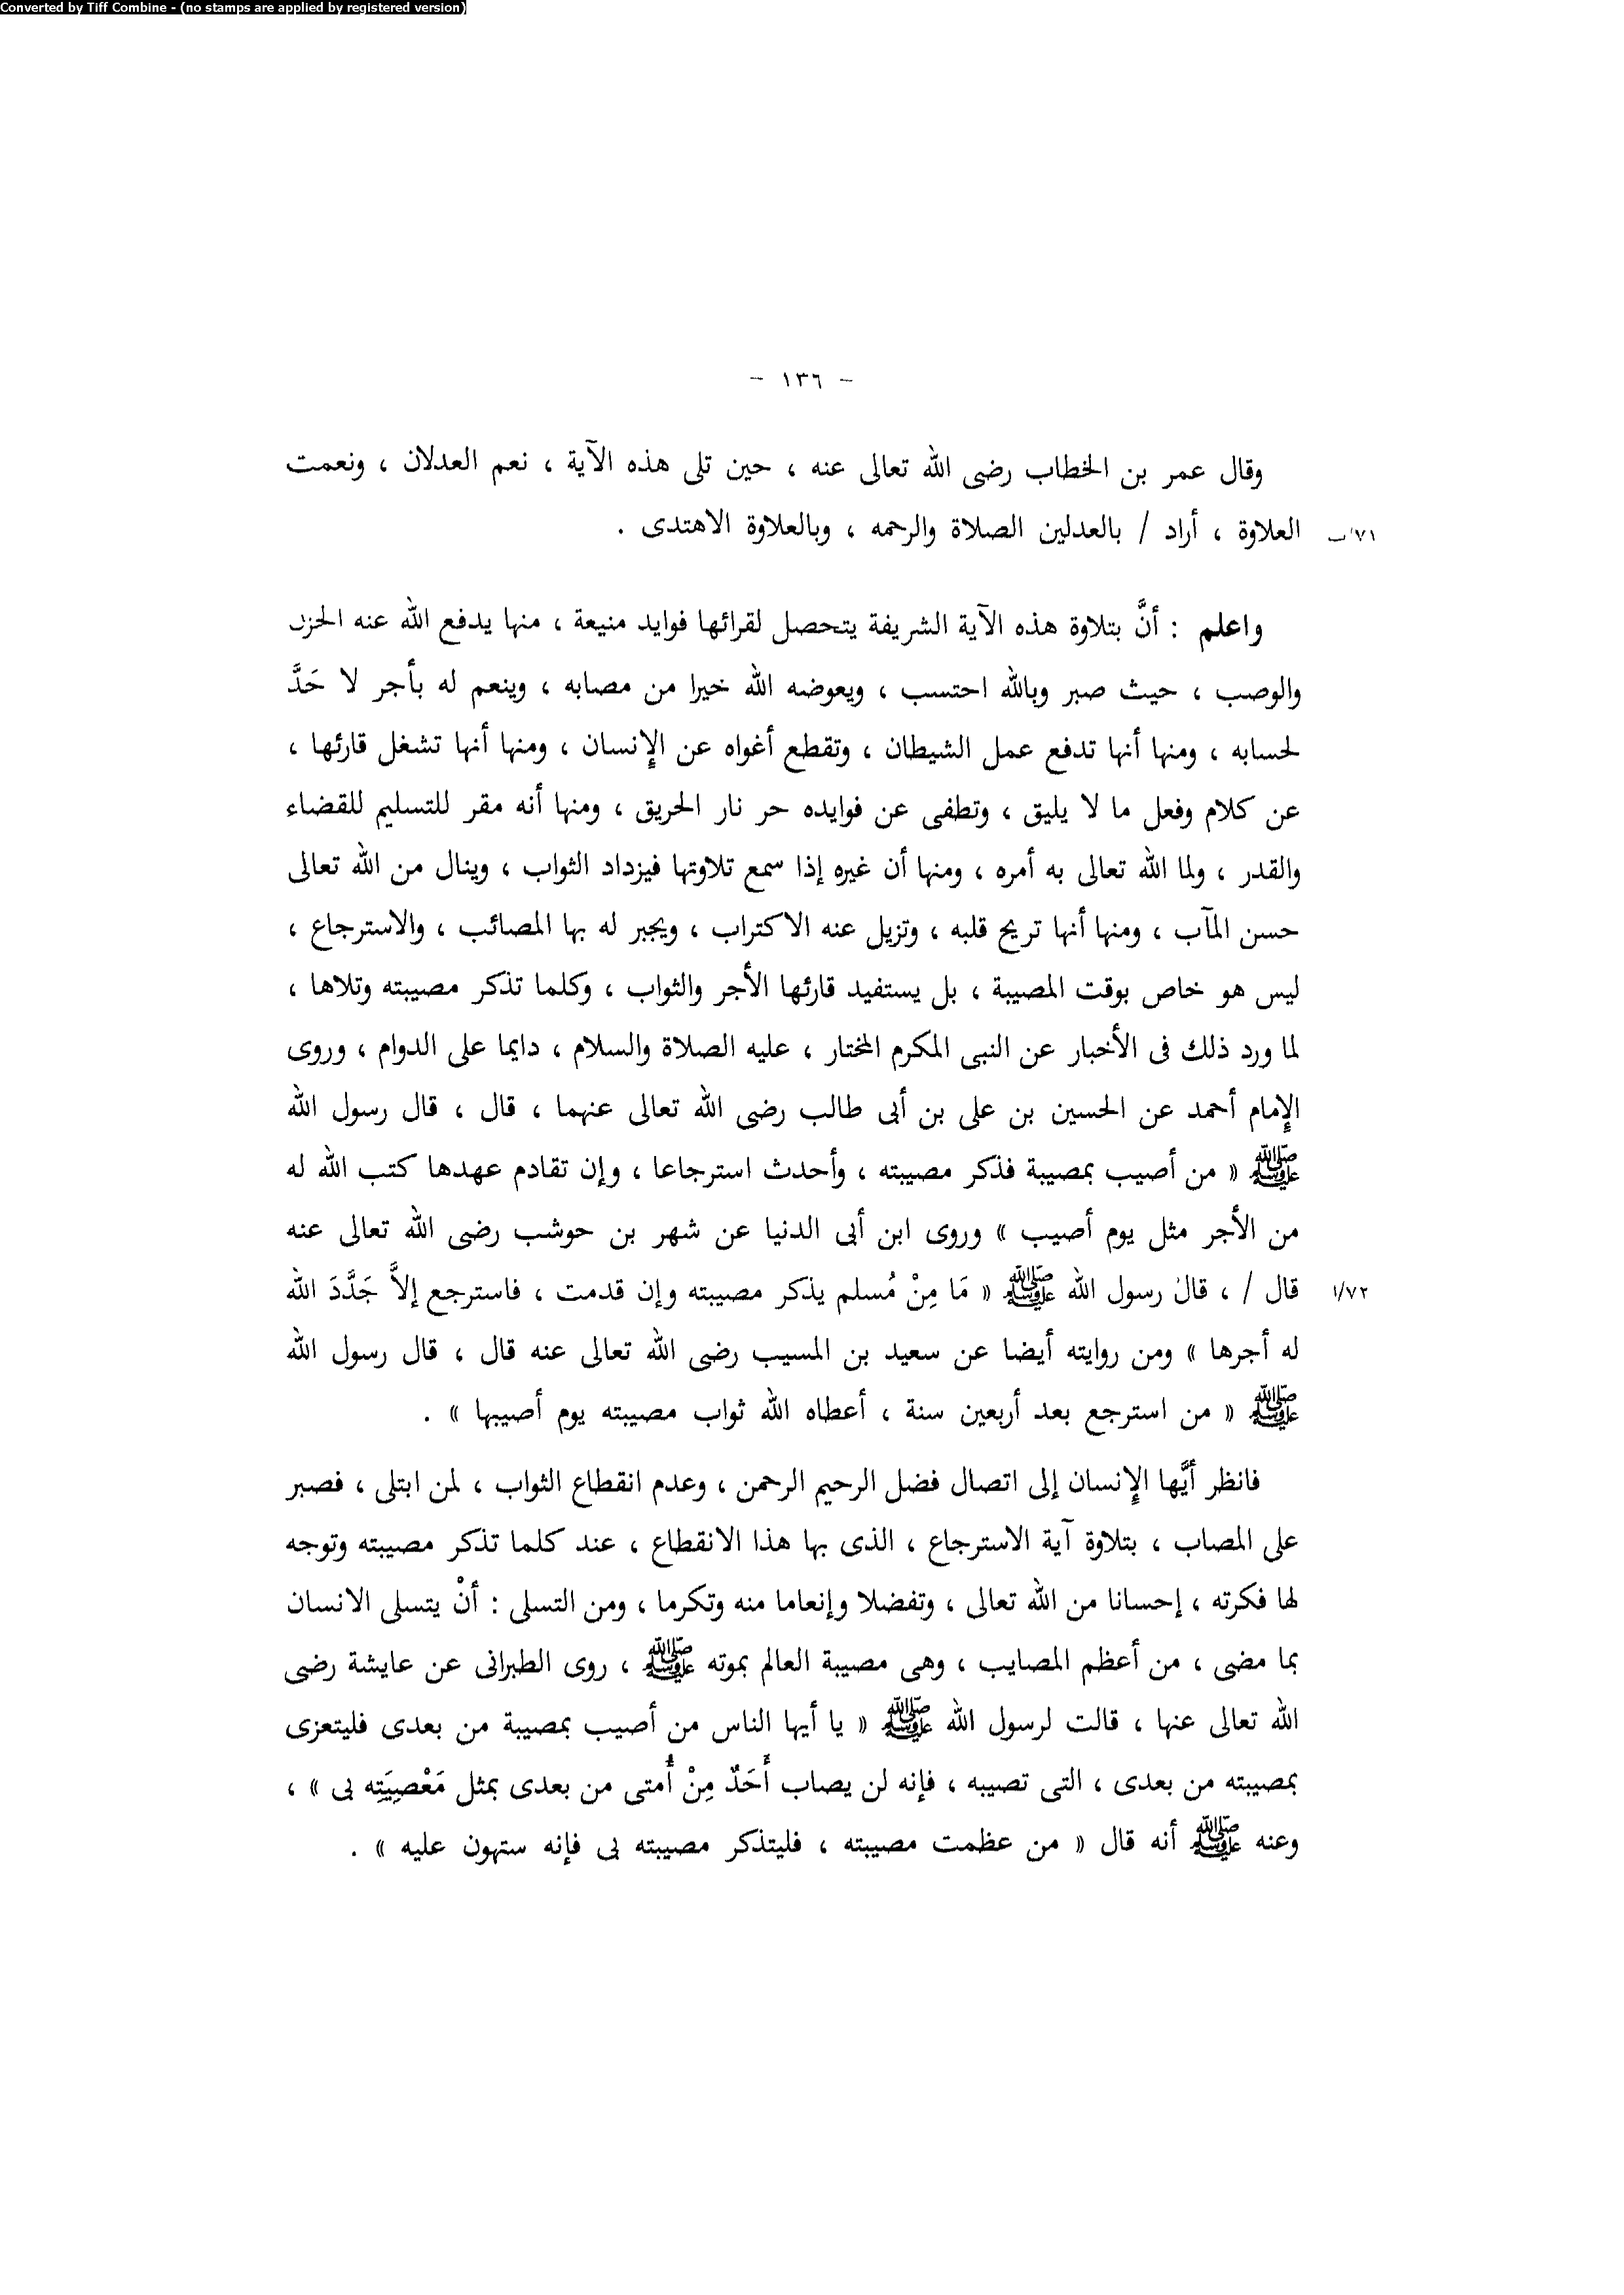 Converted by Tiff Combine - (no stamps are applied by registered version)
- ١٣٦ -
وقال عمر بن الخطاب رضى الله تعالى عنه ، حين تلى هذه الآية ، نعم العدلان ، ونعمت
العلاوة ، أراد / بالعدلين الصلاة والرحمه ، وبالعلاوة الاهتدى . ٧١/ب
واعلم : أنَّ بتلاوة هذه الآية الشريفة يتحصل لقرائها فوايد منيعة ، منها يدفع الله عنه الحزن
والوصب ، حيث صبر وبالله احتسب ، ويعوضه الله خيرا من مصابه ، وينعم له بأجر لا حَدَّ
لحسابه ، ومنها أنها تدفع عمل الشيطان ، وتقطع أغواه عن الإنسان ، ومنها أنها تشغل قارئها ،
عن كلام وفعل ما لا يليق ، وتطفى عن فوايده حر نار الحريق ، ومنها أنه مقر للتسليم للقضاء
والقدر ، ولما الله تعالى به أمره ، ومنها أن غيره إذا سمع تلاوتها فيزداد الثواب ، وينال من الله تعالى
حسن المآب ، ومنها أنها تريح قلبه ، وتزيل عنه الاكتراب ، ويجبر له بها المصائب ، والاسترجاع ،
ليس هو خاص بوقت المصيبة ، بل يستفيد قارئها الأجر والثواب ، وكلما تذكر مصيبته وتلاها ،
لما ورد ذلك فى الأخبار عن النبى المكرم المختار ، عليه الصلاة والسلام ، دايما على الدوام ، وروى
الإمام أحمد عن الحسين بن على بن أبى طالب رضى الله تعالى عنهما ، قال ، قال رسول الله
ﷺ « من أصيب بمصيبة فذكر مصيبته ، وأحدث استرجاعا ، وإن تقادم عهدها كتب الله له
من الأجر مثل يوم أصيب » وروى ابن أبى الدنيا عن شهر بن حوشب رضى الله تعالى عنه
قال / ، قال رسول الله ﷺ « مَا مِنْ مُسلم يذكر مصيبته وإن قدمت ، فاسترجع إلاَّ جَدَّدَ الله ١/٧٢
له أجرها » ومن روايته أيضا عن سعيد بن المسيب رضى الله تعالى عنه قال ، قال رسول الله
ﷺ « من استرجع بعد أربعين سنة ، أعطاه الله ثواب مصيبته يوم أصيبها » .
فانظر أيَّها الإنسان إلى اتصال فضل الرحيم الرحمن ، وعدم انقطاع الثواب ، لمن ابتلى ، فصبر
على المصاب ، بتلاوة آية الاسترجاع ، الذى بها هذا الانقطاع ، عند كلما تذكر مصيبته وتوجه
لها فكرته ، إحسانا من الله تعالى ، وتفضلا وإنعاما منه وتكرما ، ومن التسلى : أنْ يتسلى الانسان
بما مضى ، من أعظم المصايب ، وهى مصيبة العالم بموته ﷺ ، روى الطبرانى عن عايشة رضى
الله تعالى عنها ، قالت لرسول الله ﷺ « يا أيها الناس من أصيب بمصيبة من بعدى فليتعزى
بمصيبته من بعدى ، التى تصيبه ، فإنه لن يصاب أَحَدٌ مِنْ أُمتى من بعدى بمثل مَعْصِيَتِه بى » ،
وعنه ﷺ أنه قال « من عظمت مصيبته ، فليتذكر مصيبته بى فإنه ستهون عليه » .